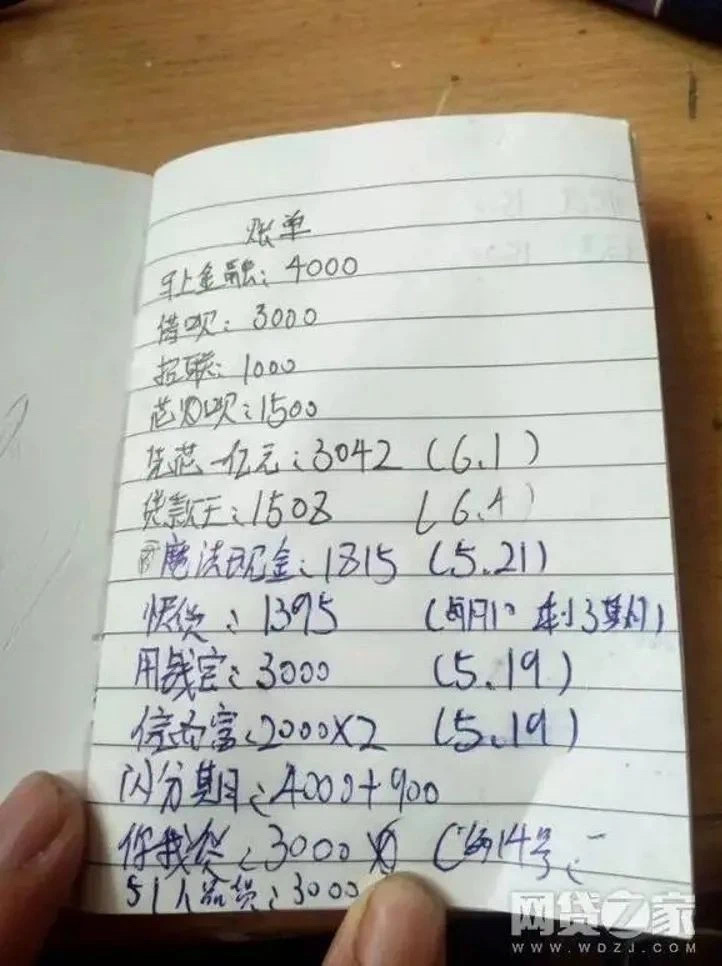 账单
金融：4000
借呗：3000
招联：1000
呗：1500
一亿元：3042 (6.1)
贷款王：1508 (6.4)
魔法现金：1815 (5.21)
快贷：1395 (每月 剩3期)
用钱宝：3000 (5.19)
信而富：2000X2 (5.19)
闪分期：4000+900
你我贷：3000 (每14号
51人品贷：3000
网贷之家
WWW.WDZJ.COM